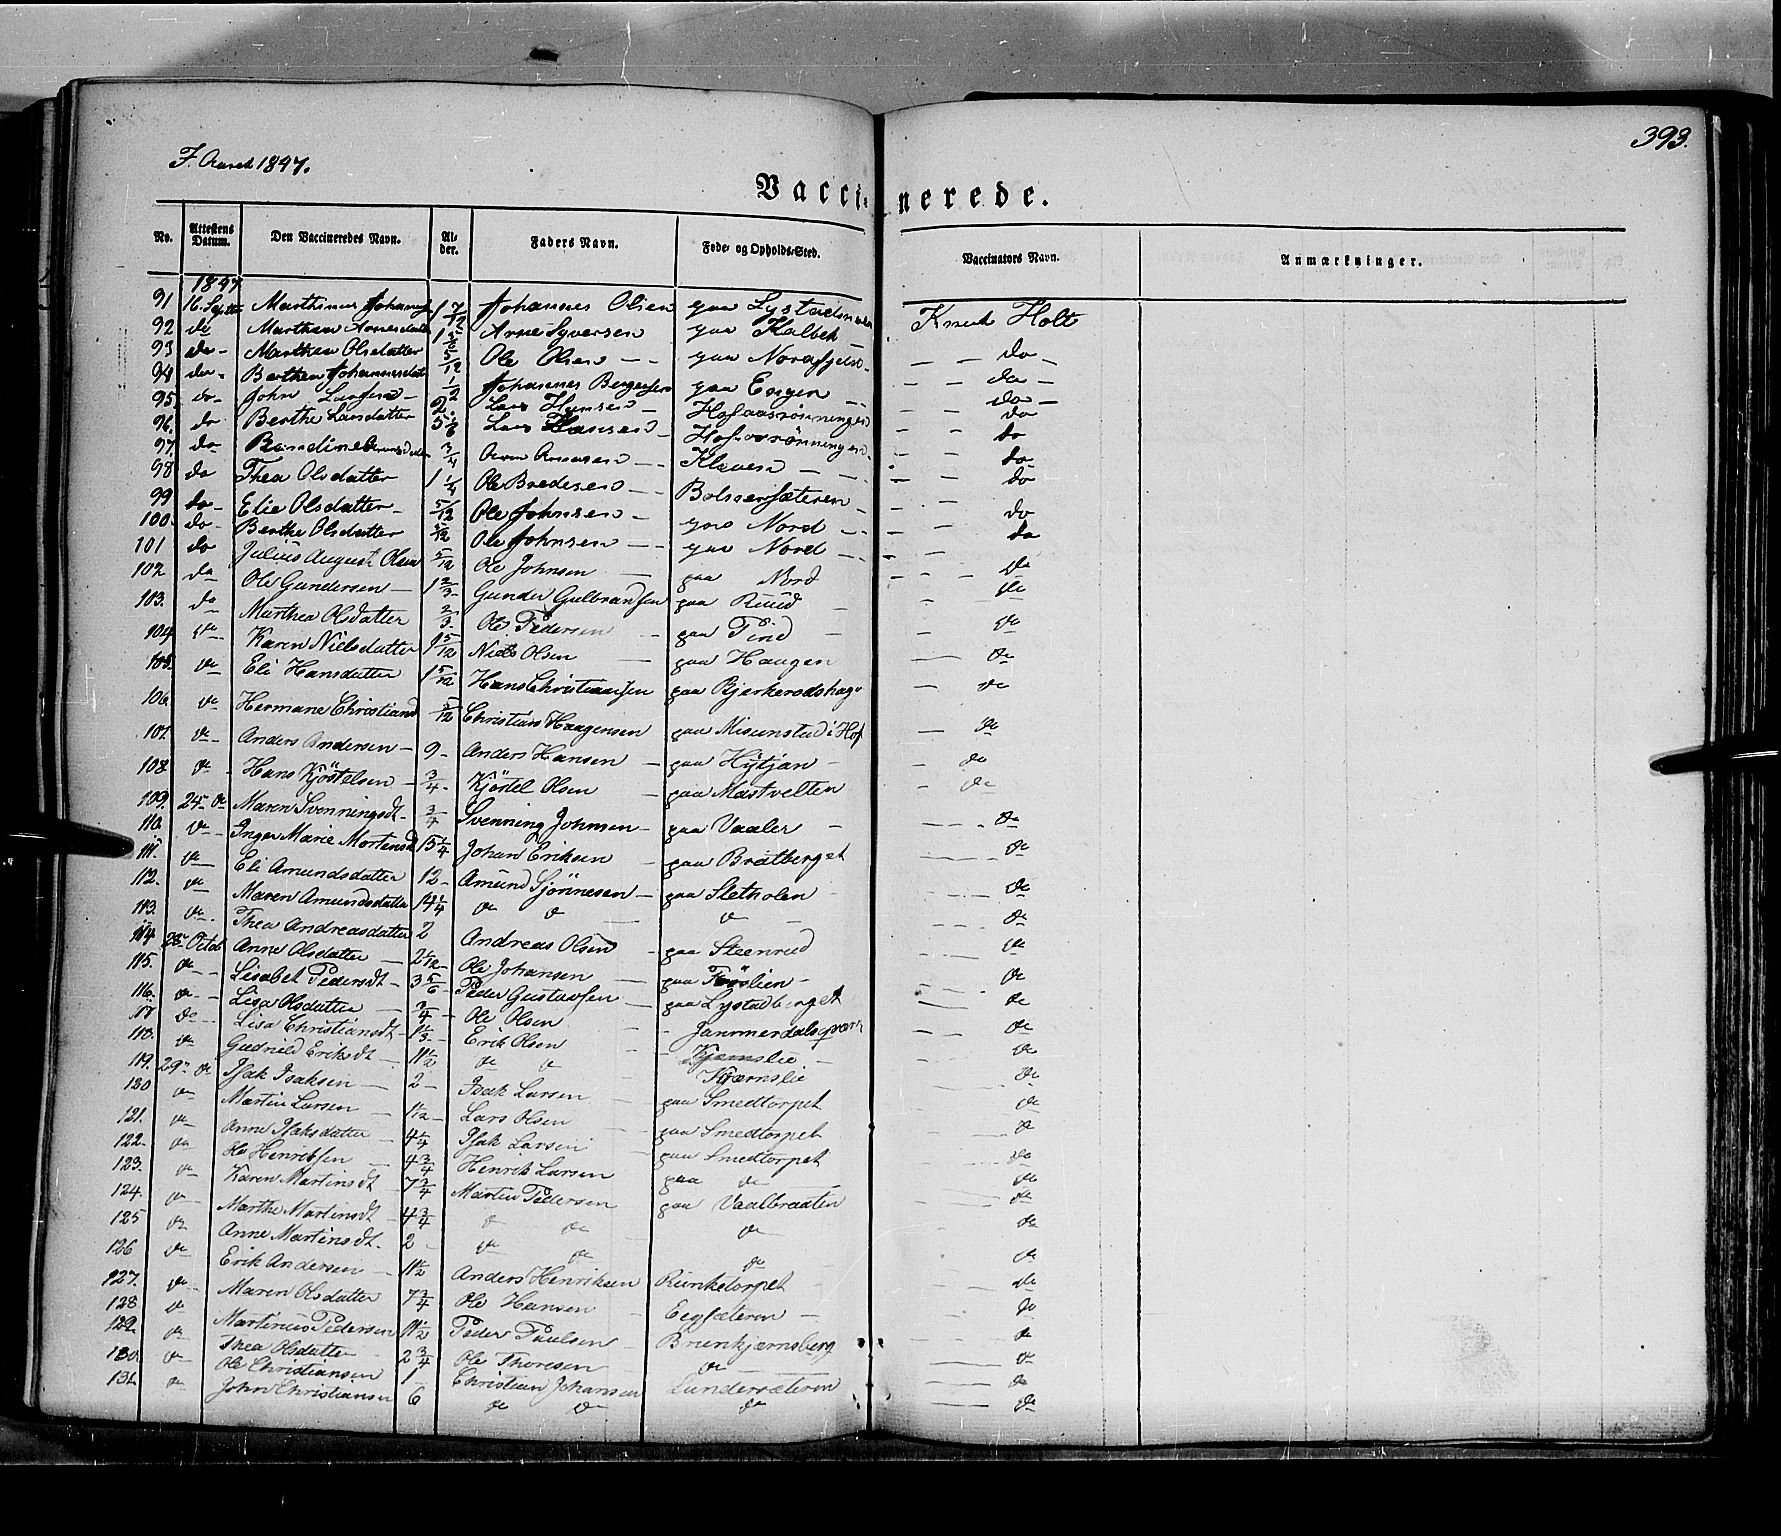 393.
F. Aaret 1847.
Vaccinerede.
No. Attestens Datum. Den Vaccineredes Navn. Alder. Faders Navn. Føde- og Opholds-Sted. Vaccinators Navn. Anmærkninger.
1847
91 16. Septbr Marthinus Johannes 1 7/12 Johannes Olsen paa Lystad Knud Holt
92 do Marthea Arnesdatter 1 Arne Syversen paa Kalbek — do —
93 do - Marthea Olsdatter 5/12 Ole Olsen — paa Nord — do —
94 do - Berthea Johannesdat 1/2 Johannes Bergersen paa Engen — do —
95 do - John Larsen — 2. Lars Hansen — Hofaasrönningen do
96. do Berthe Larsdatter 5 5/6 Lars Hansen — Hofaasrönningen do
97. do Bendine 3/4 Aren Arnesen — Klaven — do
98 do Thea Olsdatter 1 1/4 Ole Bredesen — Bolsersæteren — do
99 do - Elie Olsdatter - 5/12 Ole Johnsen — paa Nord — do
100. do - Berthe Olsdatter 5/12 Ole Johnsen — paa Nord — do
101 do Julius August Olsen 5/12 Ole Johnsen — paa Nord — do
102 do Ole Gundersen — 1 2/3 Gunder Gulbrandsen paa Ruud — do
103. do Marthea Olsdatter 2/3 Ole Pedersen — paa Tind — do
104 do Karen Nielsdatter 1 5/12 Niels Olsen — paa Haugen — do
105. do Eli Hansdatter 1 5/12 Hans Christiansen paa Bjerkerodshag — do
106. do Hermane Christiand 5/12 Christian Haagensen paa Misunstad i Hof — do
107. do - Anders Andersen — 9 - Anders Hansen — paa Hytjan - do
108 do - Hans Kjöstelsen — 3/4 Kjöstel Olsen — paa Mastvelten do
109. 24 - do Maren Svenningsdt - 3/4 Svenning Johnsen — paa Vaaler — do
110. do - Inger Marie Mortensd 15 1/4 Johan Eriksen — paa Bratberget — do
111. do Eli Amundsdatter 12 - Amund Sjönnesen — paa Sletholen — do
112. do Maren Amundsdatter 14 1/4 do do — do — do
113. do - Thea Andreasdatter 2 Andreas Olsen - paa Steenrud — do
114 28 Octob Anne Olsdatter — 2 1/12 Ole Johansen — paa Foslien - do
115. do - Lisabet Pedersdt - 3 5/6 Peder Gustavsen — paa Lystadberget — do
116. do - Lisa Olsdatter — 3/4 Ole Olsen — Jammerdals — do
117 do - Lisa Christiansdt - 1 1/3 Erik Olsen — Kjærnslie — do
118. do Gudnild Eriksdt — 11 1/2 do do Kjærnslie do
119. 29 do Isak Isaksen — 2 - Isak Larsen — paa Smedtorpet — do
120 do Martin Larsen — 1 1/12 Lars Olsen — paa Smedtorpet — do
121. do Anne Isaksdatter 4 1/4 Isak Larsen paa Smedtorpet — do
122. do Ole Henriksen — 4 3/4 Henrik Larsen paa do — do
123. do Karen Martinsdt — 7 3/4 Martin Pedersen paa Vaalbraaten — do
124. do Marthe Martinsdt — 4 3/4 do do do — do
125 do Anne Martinsdt. 2 - do do do — do
126 do Erik Andersen — 11 1/2 Anders Henriksen Runketorpet — do
127. do Maren Olsdatter 7 3/4 Ole Hansen — Eegsæteren — do
128 do Martinius Pedersen 11 1/2 Peder Paulsen — Brunkjærnsberg — do
129. do Thea Olsdatter 2 3/4 Ole Thoresen — do — do
130. do Ole Christiansen 1 Christian Johansen Lundersæteren — do
131. do John Christiansen 6 do do do — do